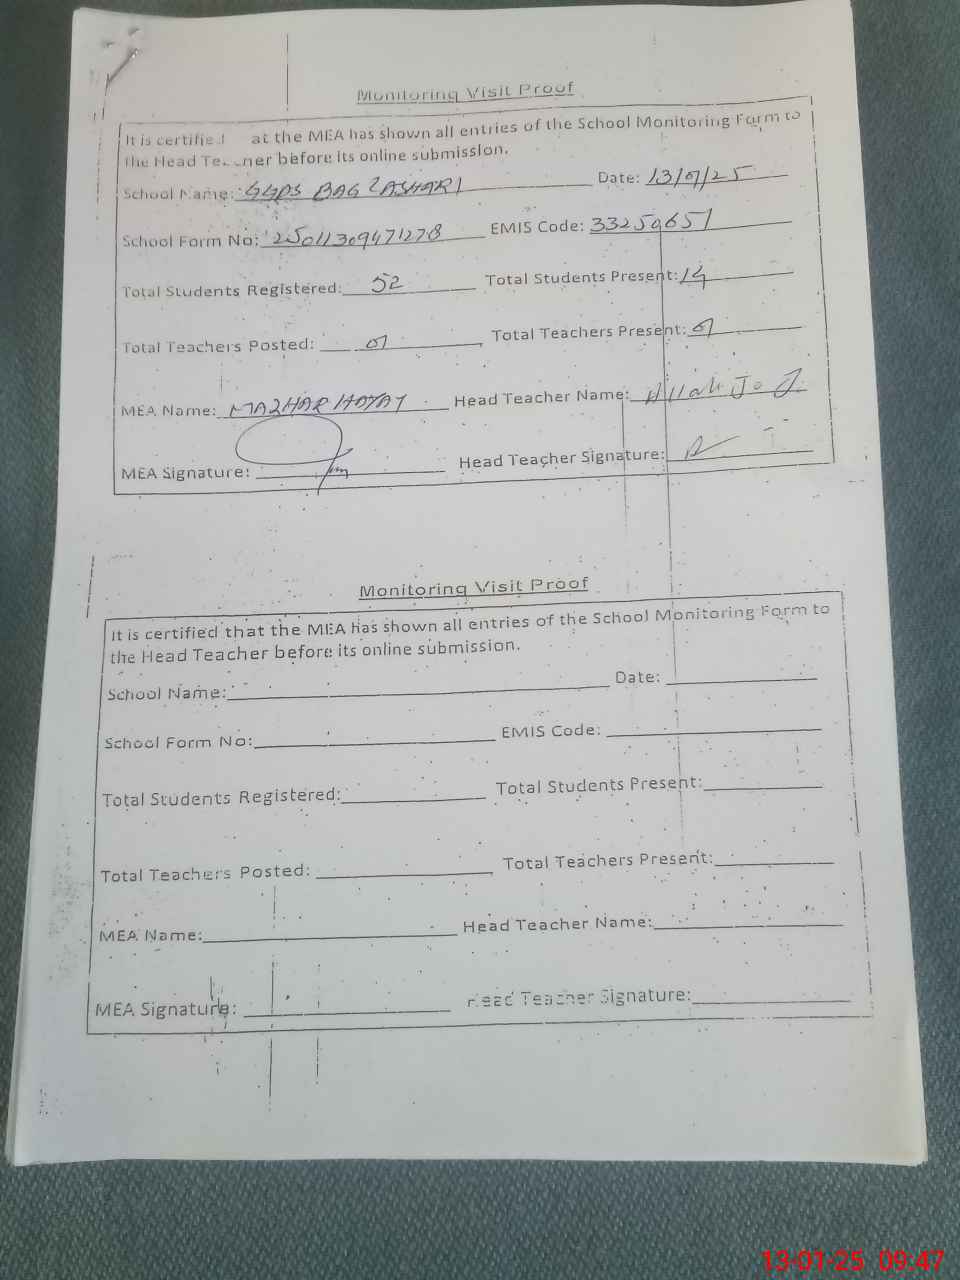 Monitoring Visit Proof
It is certified at the MEA has shown all entries of the School Monitoring Form to
the Head Teacher before its online submission.
School Name: GGPS BAG LASHARI Date: 13/01/25
School Form No: 25011309471278 EMIS Code: 33250651
Total Students Registered: 52 Total Students Present: 14
Total Teachers Posted: 01 Total Teachers Present: 01
MEA Name: MAZHAR HAYAT Head Teacher Name:
MEA Signature: Head Teacher Signature:
Monitoring Visit Proof
It is certified that the MEA has shown all entries of the School Monitoring Form to
the Head Teacher before its online submission.
School Name: Date:
School Form No: EMIS Code:
Total Students Registered: Total Students Present:
Total Teachers Posted: Total Teachers Present:
MEA Name: Head Teacher Name:
MEA Signature: Head Teacher Signature:
13-01-25 09:47